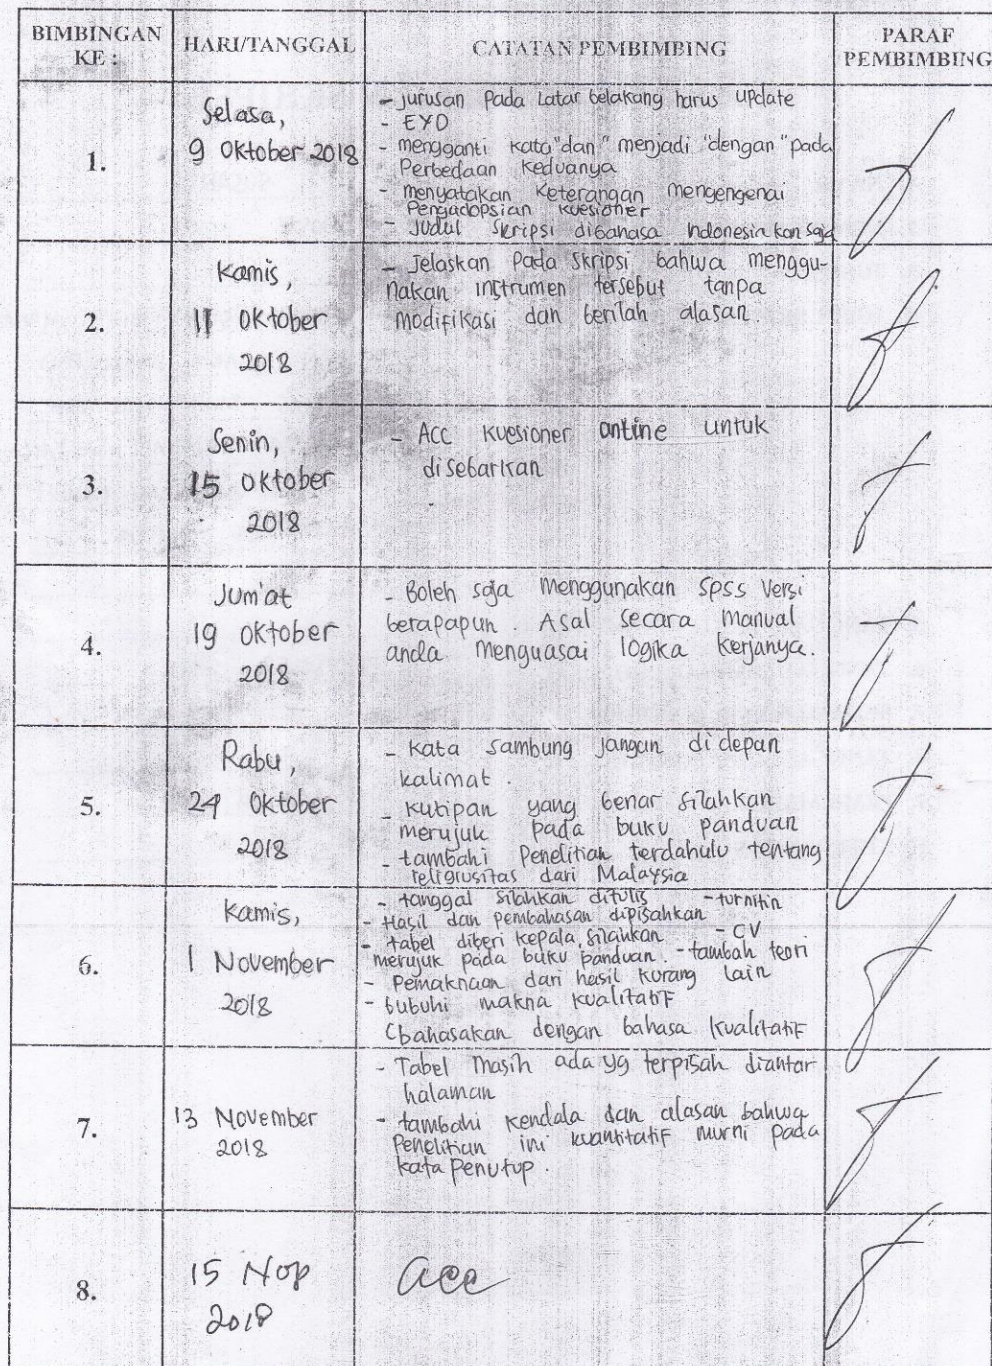 BIMBINGAN KE : HARI/TANGGAL CATATAN PEMBIMBING PARAF PEMBIMBING
1.
Selasa,
9 Oktober 2018
- Jurusan Pada Latar belakang harus update
- EYD
- mengganti kata "dan" menjadi "dengan" pada
Perbedaan Keduanya
- menyatakan Keterangan mengengenai
Pengadopsian kuesioner
- Judul Skripsi dibahasa Indonesia kan saja
2.
Kamis,
11 Oktober
2018
- Jelaskan Pada Skripsi bahwa menggu-
nakan instrumen tersebut tanpa
modifikasi dan berilah alasan.
3.
Senin,
15 Oktober
2018
- Acc kuesioner online untuk
disebarkan
4.
Jum'at
19 Oktober
2018
- Boleh saja menggunakan SPSS Versi
berapapun. Asal secara manual
anda menguasai logika kerjanya.
5.
Rabu,
24 Oktober
2018
- Kata sambung jangan di depan
kalimat.
- Kutipan yang benar silahkan
merujuk pada buku panduan
- tambahi Penelitian terdahulu tentang
religiusitas dari Malaysia
6.
Kamis,
1 November
2018
- tanggal silahkan ditulis - turnitin
- Hasil dan pembahasan dipisahkan
- tabel diberi kepala, silahkan - CV
merujuk pada buku panduan. - tambah teori
- Pemaknaan dari hasil kurang lain
- bubuhi makna kualitatif
(bahasakan dengan bahasa kualitatif
7.
13 November
2018
- Tabel masih ada yg terpisah diantar
halaman
- tambahi kendala dan alasan bahwa
Penelitian ini kuantitatif murni pada
kata Penutup.
8.
15 Nop
2018
acc